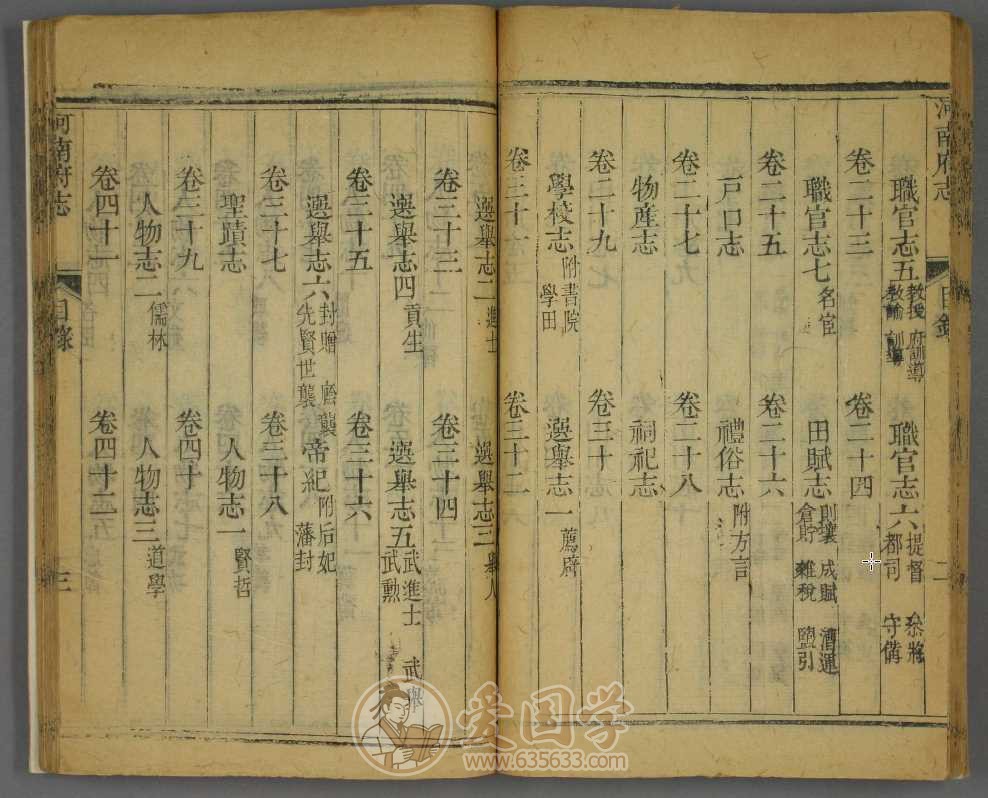 河南府志 目錄 二
職官志五 教授 府訓導 教諭 訓導 職官志六 提督 參將 都司 守備
卷二十三 卷二十四
職官志七 名宦 田賦志 則壤 成賦 漕運 倉貯 雜稅 鹽引
卷二十五 卷二十六
戶口志 禮俗志 附方言
卷二十七 卷二十八
物產志 祠祀志
卷二十九 卷三十
學校志 附書院 學田 選舉志一 薦辟
卷三十一 卷三十二
選舉志二 進士 選舉志三 舉人
卷三十三 卷三十四
選舉志四 貢生 選舉志五 武進士 武舉 武勳
卷三十五 卷三十六
選舉志六 封贈 廕襲 先賢世襲 帝紀 附后妃 藩封
卷三十七 卷三十八
聖蹟志 人物志一 賢哲
卷三十九 卷四十
人物志二 儒林 人物志三 道學
卷四十一 卷四十二
河南府志 目錄 三
爱国学
www.635633.com